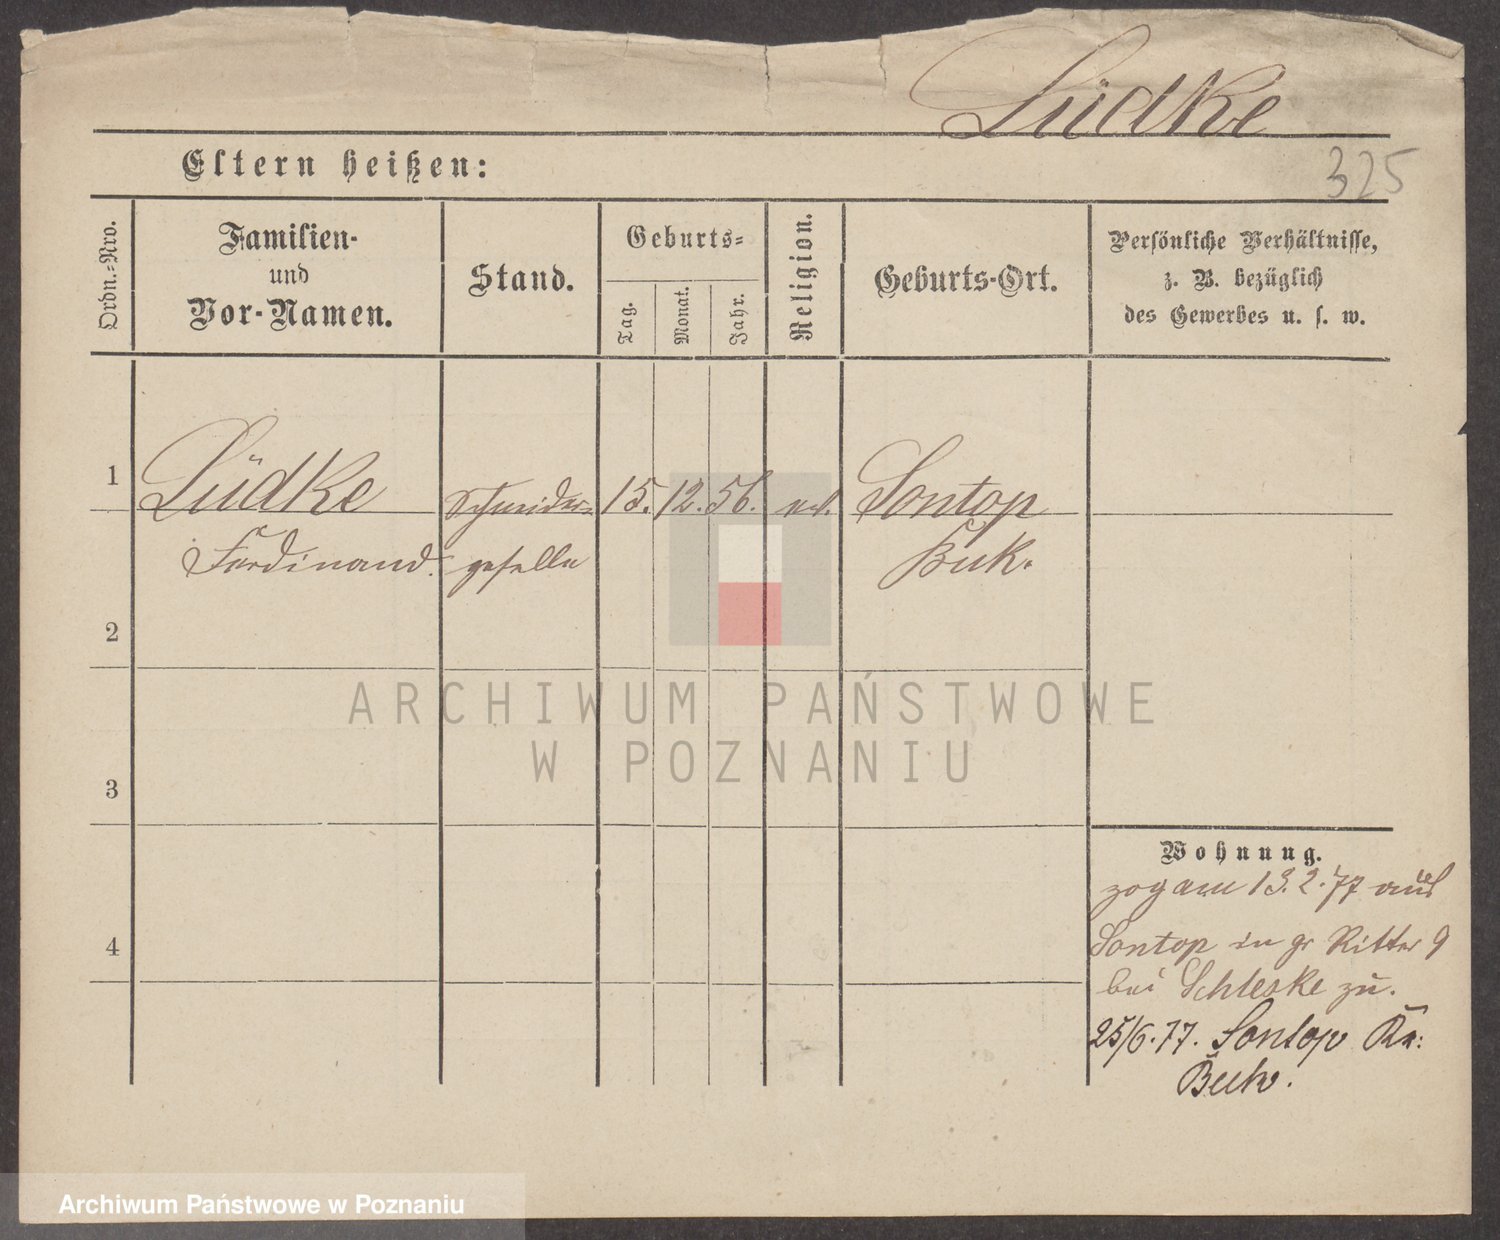 Lüdke
Eltern heißen:
325
Ordn.-Nro.
Familien-
und
Vor-Namen.
Stand.
Geburts-
Tag.
Monat.
Jahr.
Religion.
Geburts-Ort.
Persönliche Verhältnisse,
z. B. bezüglich
des Gewerbes u. s. w.
1
Lüdke Schneider- 15. 12. 56. ev. Sontop
Ferdinand. geselle Buk.
2
3
4
ARCHIWUM PAŃSTWOWE
W POZNANIU
Wohnung.
zog am 13.2.77 aus
Sontop in gr Ritter 9
bei Schleske zu.
25/6.77. Sontop Kr:
Buk.
Archiwum Państwowe w Poznaniu